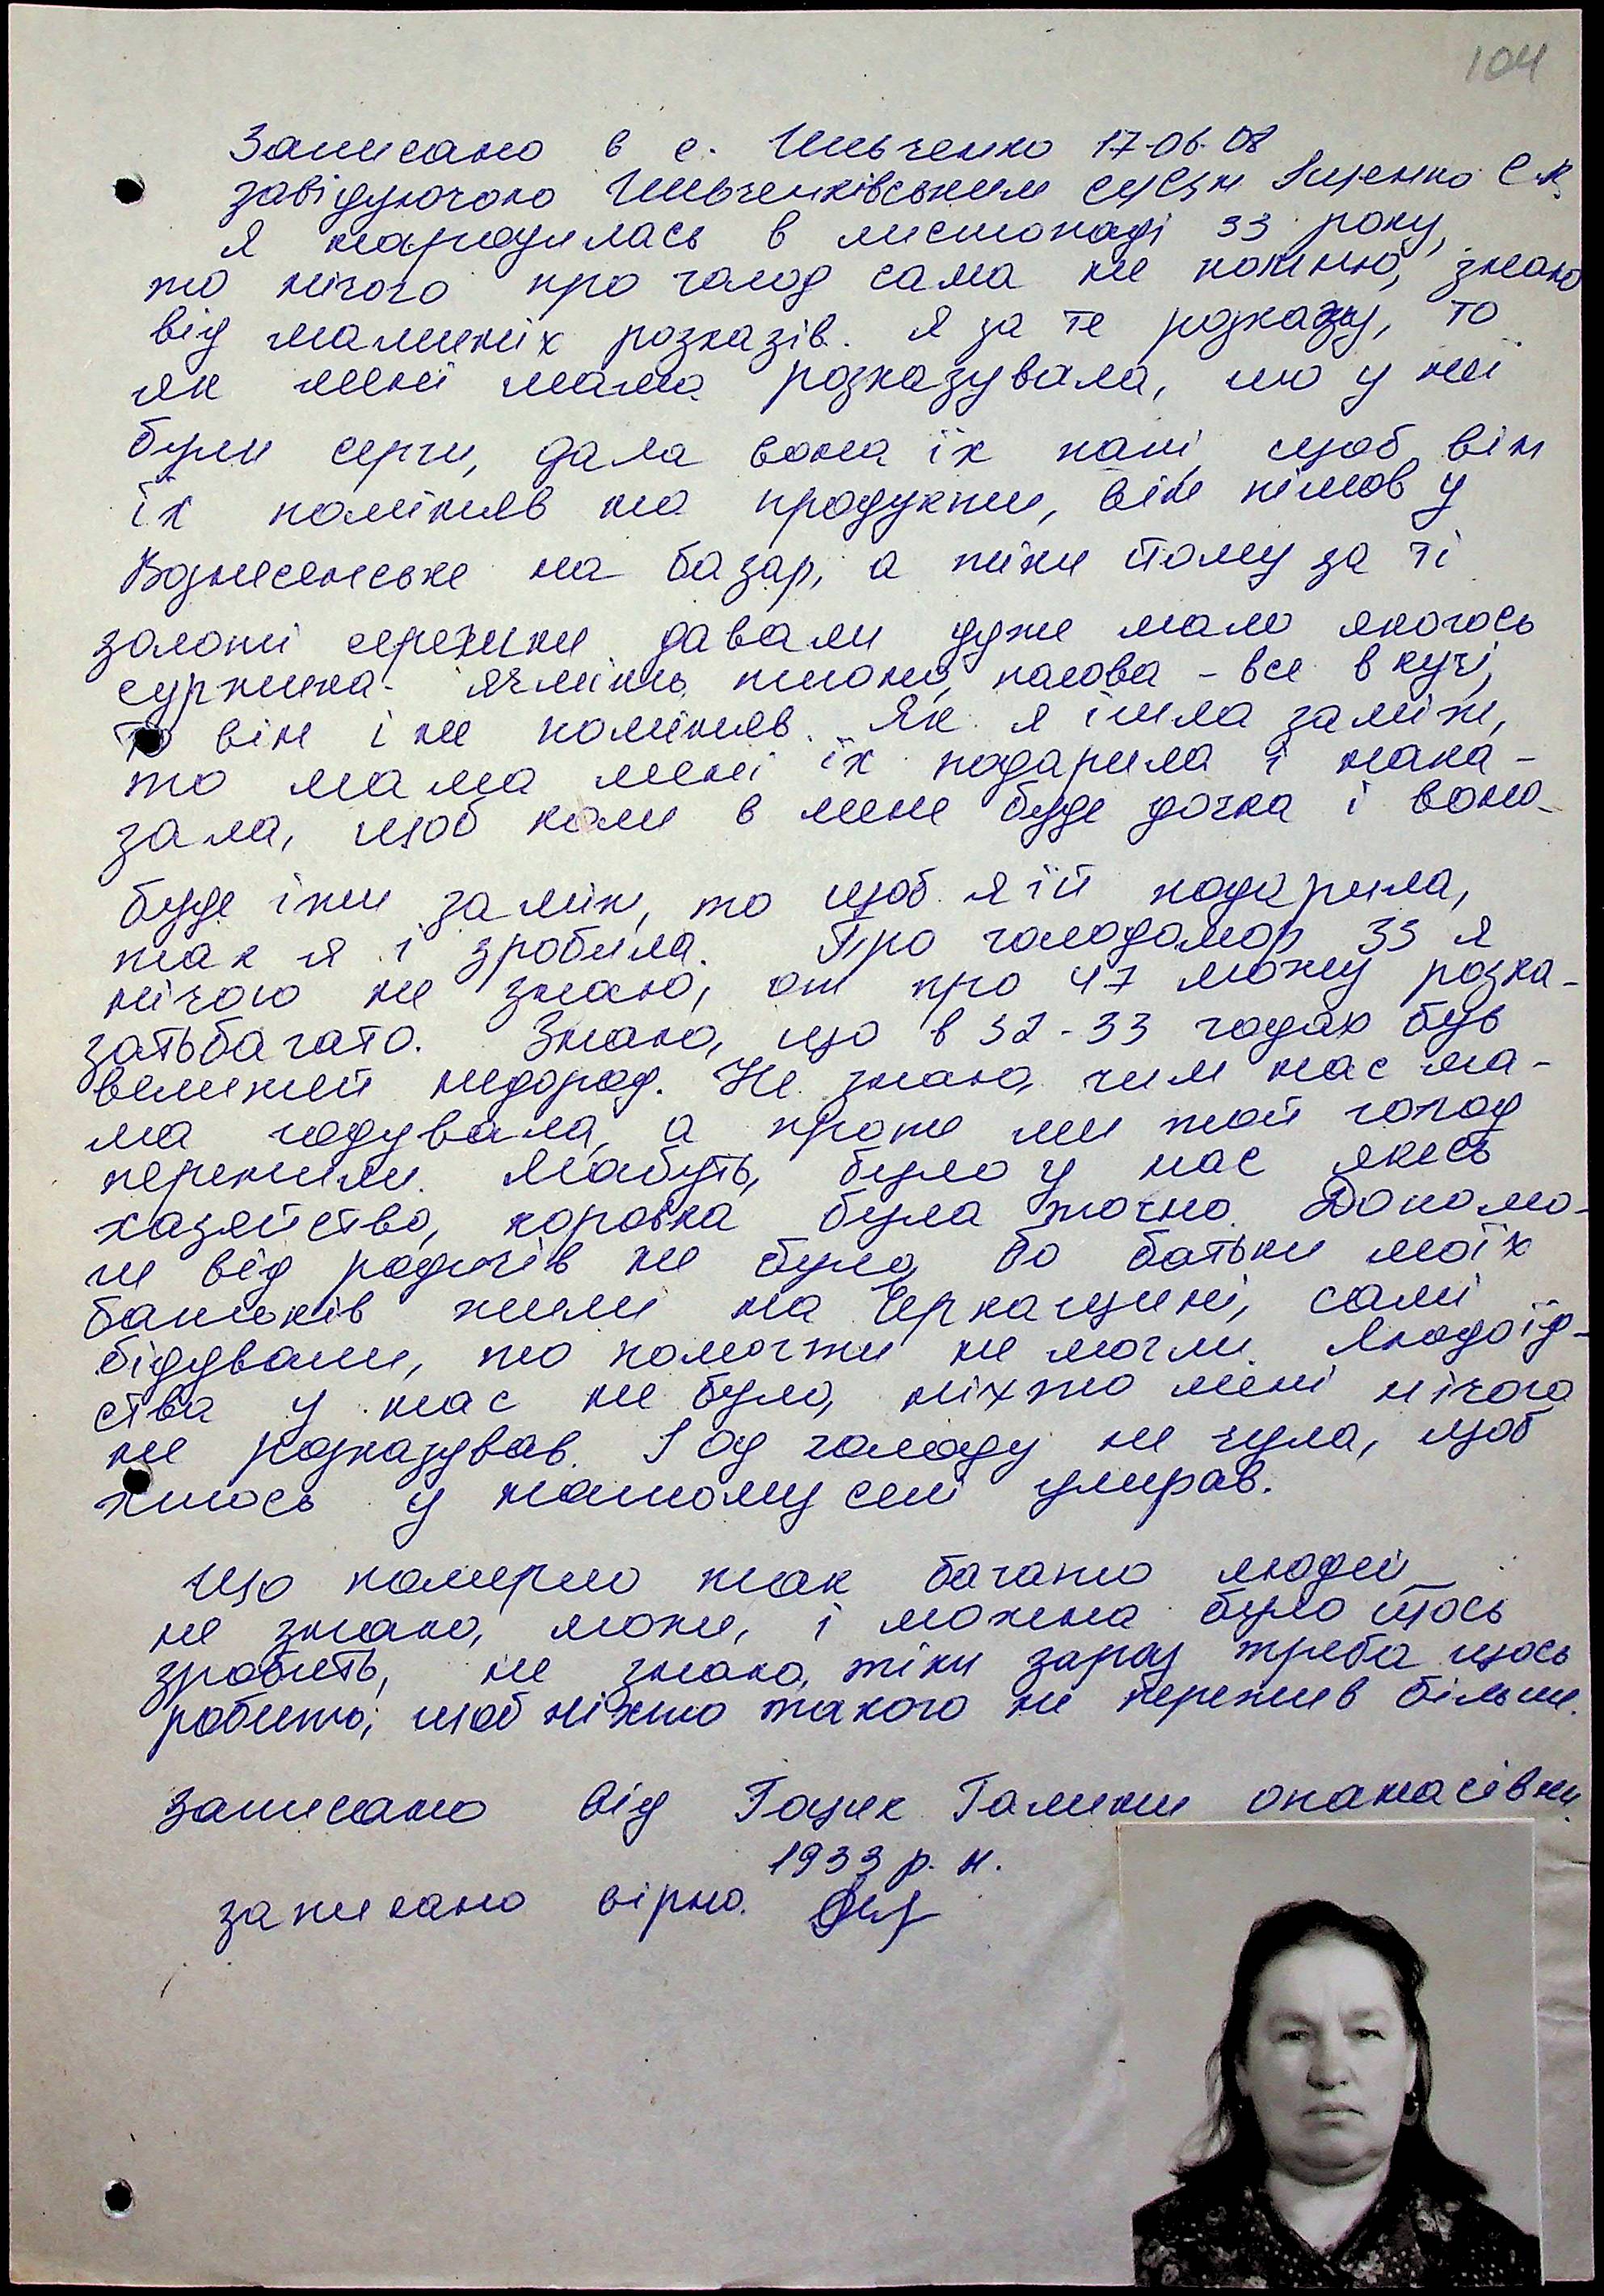 104
Записано в с. Шевченко 17-06-08
завідуючою Шевченківським СЦСДК Яценко С.К.
Я народилась в листопаді 33 року,
то нічого про голод сама не помню, знаю
від маминих розказів. Я за те розкажу, то
як мені мама розказувала, шо у неї
були серги, дала вона їх папі, щоб він
їх поміняв на продукти, він пішов у
Вознесенське на базар, а тіки йому за ті
золоті сережки давали дуже мало якогось
суржика - ячмінь, пшоно, полова - все в кучі,
то він і не поміняв. Як я ішла заміж,
то мама мені їх подарила і нака-
зала, щоб коли в мене буде дочка і вона
буде іти заміж, то щоб я їй подарила,
так я і зробила. Про голодомор 33 я
нічого не знаю, от про 47 можу розка-
зать багато. Знаю, що в 32-33 годах був
великий недород. Не знаю, чим нас ма-
ма годувала, а проте ми той голод
пережили. Мабуть, було у нас якесь
хазяйство, коровка була точно. Допомо-
ги від родичів не було, бо батьки моїх
батьків жили на Черкащині, самі
бідували, то помогти не могли. Людоїд-
ства у нас не було, ніхто мені нічого
не розказував. І од голоду не чула, щоб
хтось у нашому селі умирав.
Що померло так багато людей
не знаю, може, і можна було щось
зробить, не знаю, тіки зараз треба щось
робить, щоб ніхто такого не пережив більше.
Записано від Гоцик Галини Опанасівни
1933 р. н.
записано вірно.